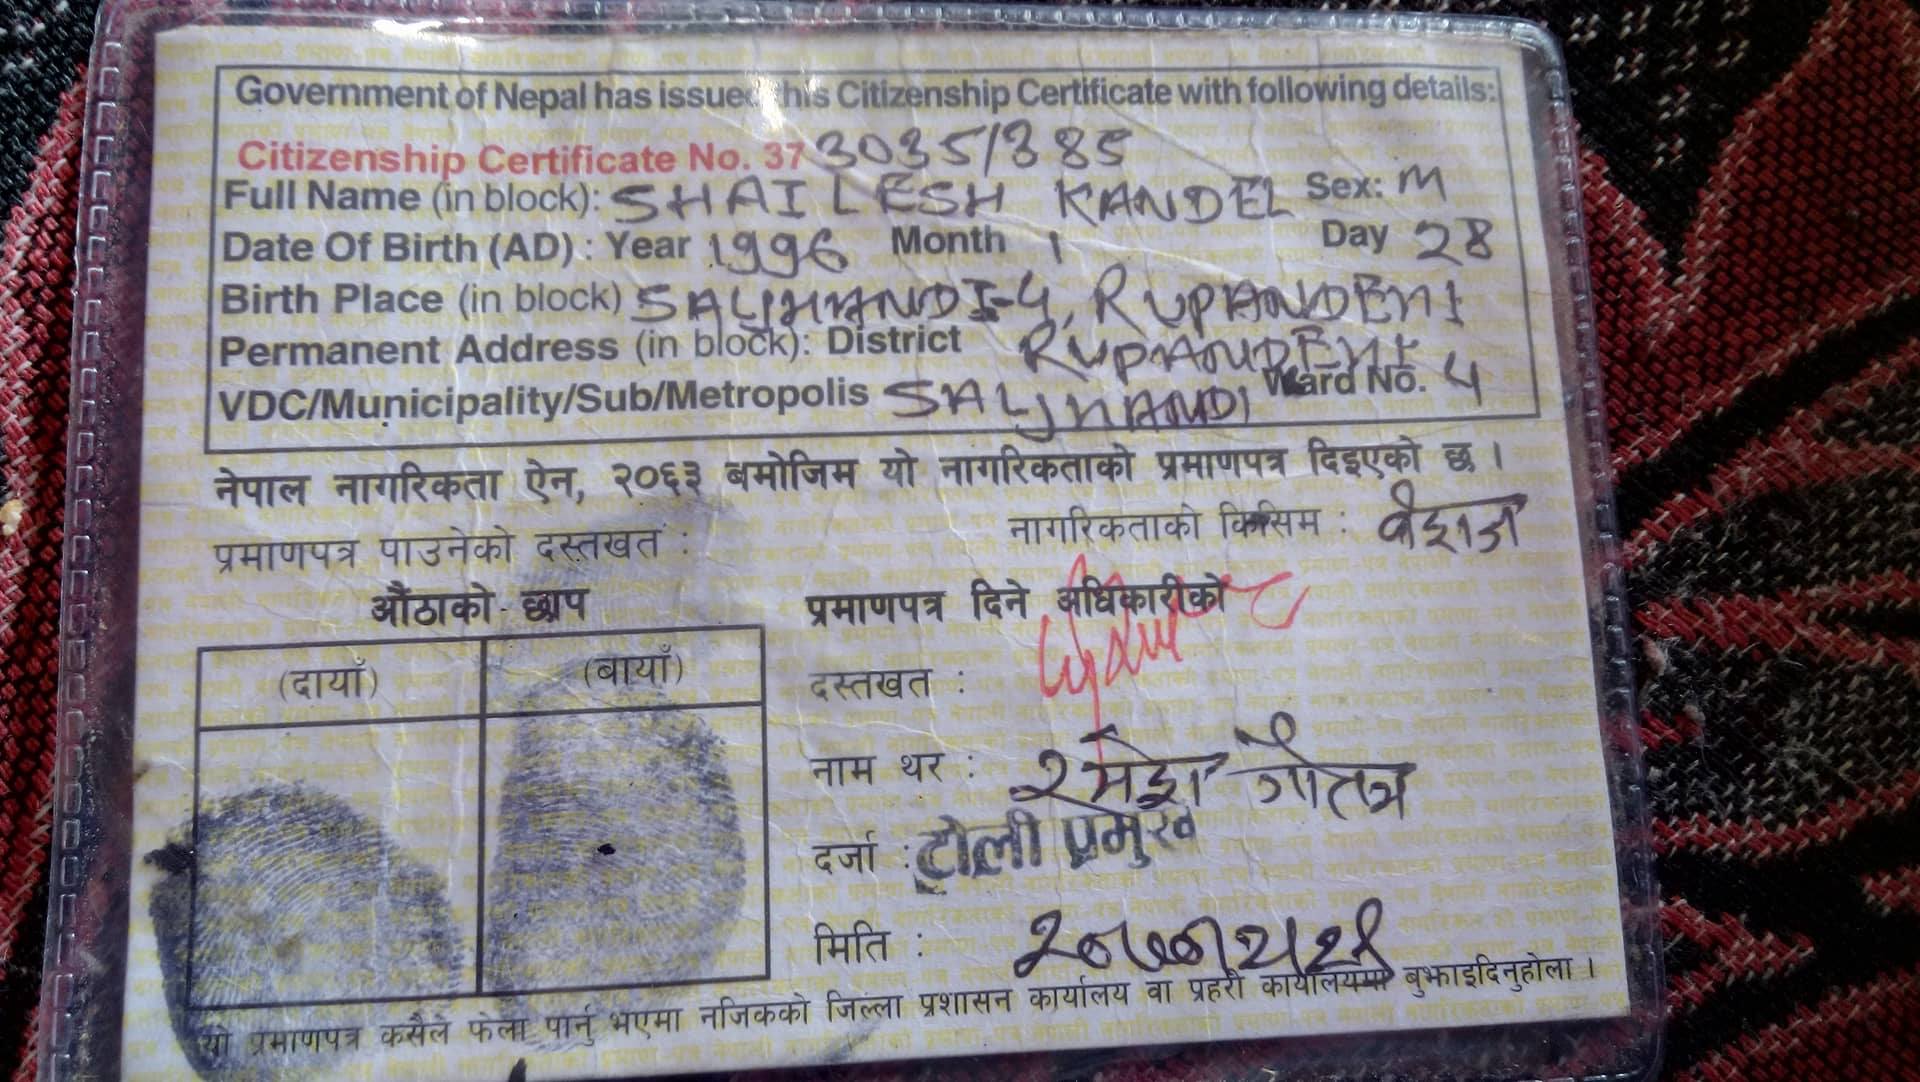 Government of Nepal has issued this Citizenship Certificate with following details:
Citizenship Certificate No. 37 3035/385
Full Name (in block): SHAILESH KANDEL Sex: M
Date Of Birth (AD) : Year 1996 Month 1 Day 28
Birth Place (in block) SALJHANDI-4, RUPANDEHI
Permanent Address (in block): District RUPANDEHI
VDC/Municipality/Sub/Metropolis SALJHANDI Ward No. 4
नेपाल नागरिकता ऐन, २०६३ बमोजिम यो नागरिकताको प्रमाणपत्र दिइएको छ ।
नागरिकताको किसिम : वंशज
प्रमाणपत्र पाउनेको दस्तखत :
औंठाको छाप
प्रमाणपत्र दिने अधिकारीको
(दायाँ) (बायाँ)
दस्तखत :
नाम थर : रमेश गौतम
दर्जा : टोली प्रमुख
मिति :
यो प्रमाणपत्र कसैले फेला पार्नु भएमा नजिकको जिल्ला प्रशासन कार्यालय वा प्रहरी कार्यालयमा बुझाइदिनुहोला ।